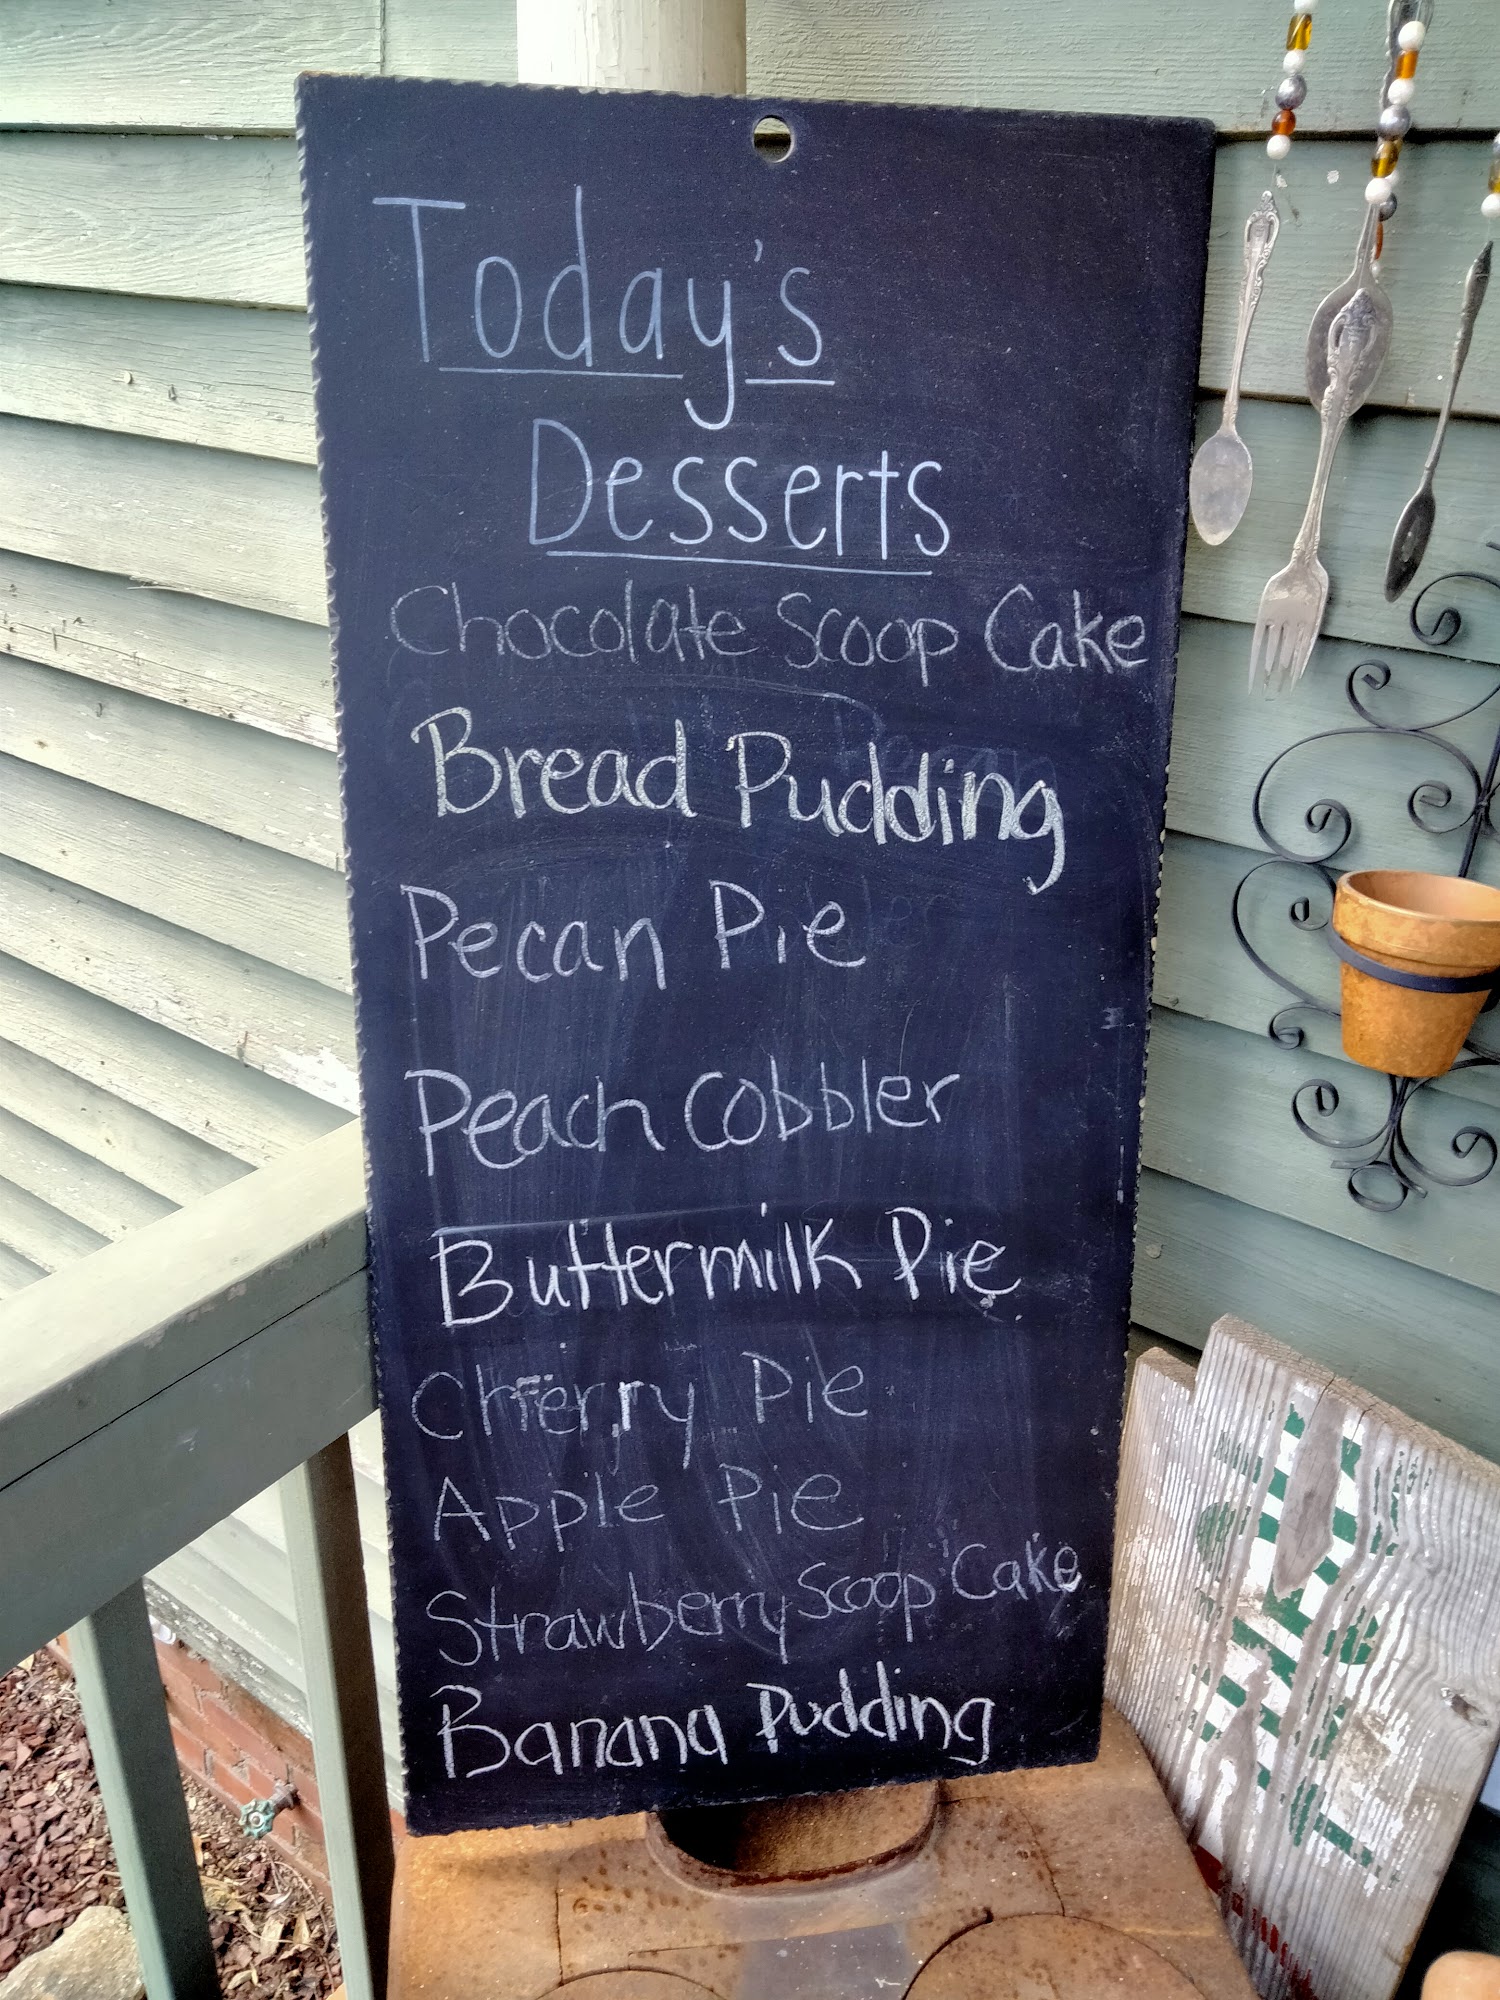 Today's
Desserts
Chocolate Scoop Cake
Bread Pudding
Pecan Pie
Peach Cobbler
Buttermilk Pie
Cherry Pie
Apple Pie
Strawberry Scoop Cake
Banana Pudding